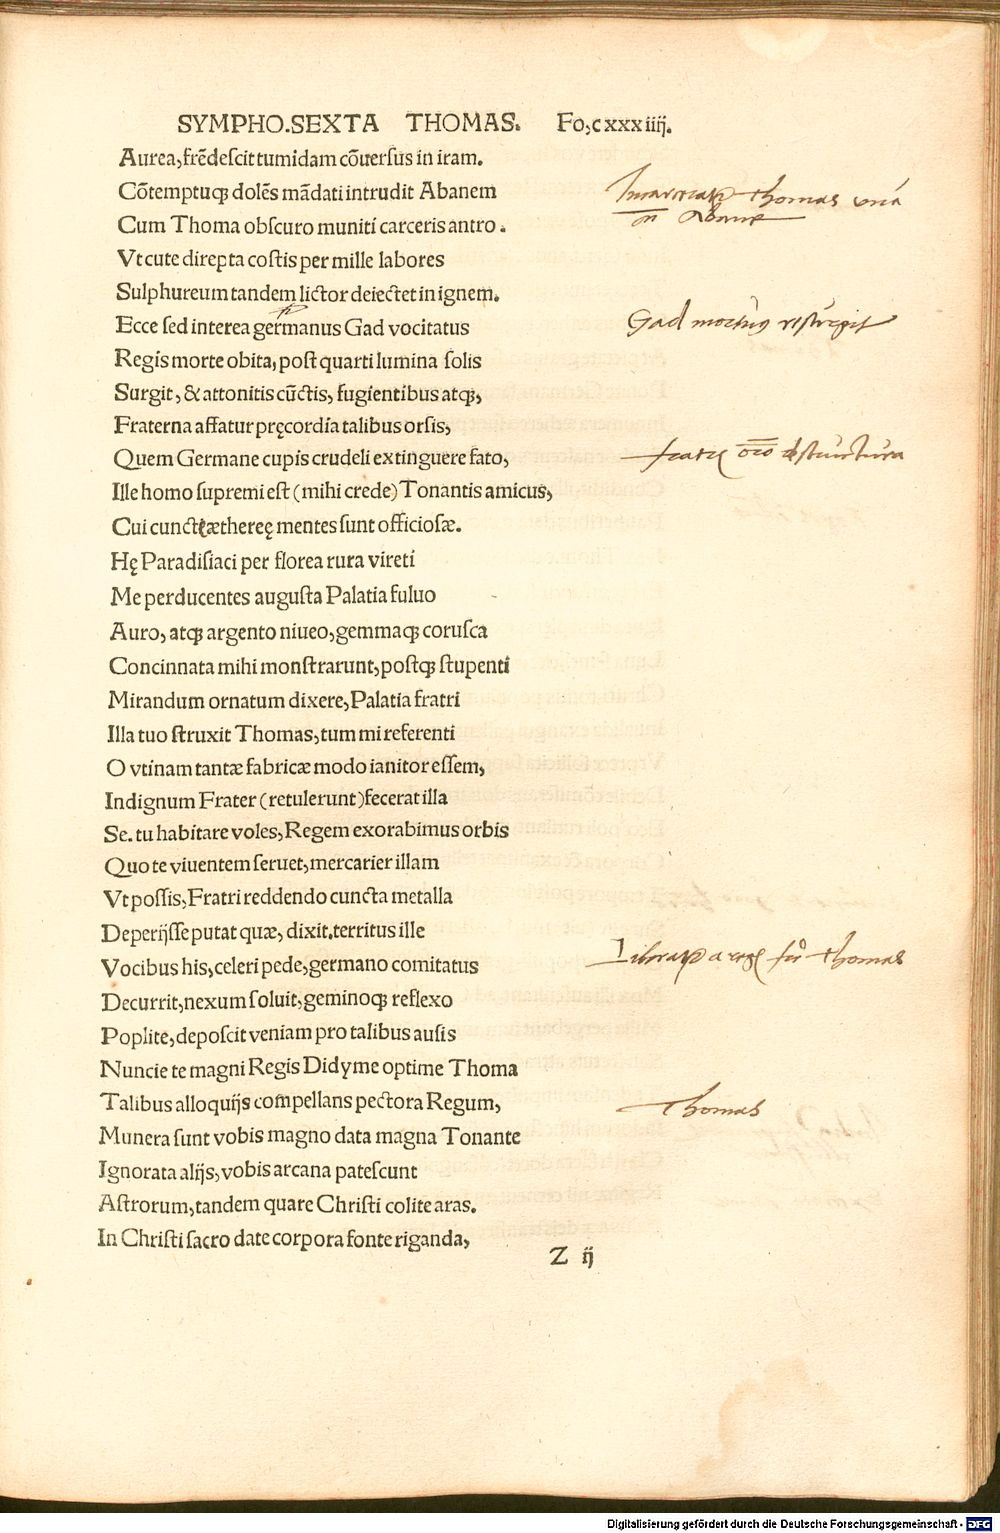 SYMPHO.SEXTA THOMAS. Fo,cxxxiiij.
Aurea,frẽdescit tumidam cõuersus in iram.
Cõtemptuq; dolẽs mãdati intrudit Abanem
Thomas vnà
Cum Thoma obscuro munití carceris antro.
Abane
Vt cute direpta costis per mille labores
Sulphureum tandem lictor deiectet in ignem.
Ecce sed interea germanus Gad vocitatus
Gad mortuus resurgit
Regis morte obita, post quarti lumina solis
Surgit, & attonitis cũctis, fugientibus atq;,
Fraterna affatur pręcordia talibus orsis,
Quem Germane cupis crudeli extinguere fato,
Ille homo supremi est (mihi crede) Tonantis amicus,
Cui cunctę æthereę mentes sunt officiosæ.
Hę Paradisiaci per florea rura vireti
Me perducentes augusta Palatia fuluo
Auro, atq; argento niueo, gemmaq; corusca
Concinnata mihi monstrarunt, postq; stupenti
Mirandum ornatum dixere, Palatia fratri
Illa tuo struxit Thomas, tum mi referenti
O vtinam tantæ fabricæ modo ianitor essem,
Indignum Frater (retulerunt) fecerat illa
Se. tu habitare voles, Regem exorabimus orbis
Quo te viuentem seruet, mercarier illam
Vt possis, Fratri reddendo cuncta metalla
Deperijsse putat quæ, dixit. territus ille
Vocibus his, celeri pede, germano comitatus
Thomas
Decurrit, nexum soluit, geminoq; reflexo
Poplite, deposcit veniam pro talibus ausis
Nuncie te magni Regis Didyme optime Thoma
Talibus alloquijs compellans pectora Regum,
Thomas
Munera sunt vobis magno data magna Tonante
Ignorata alijs, vobis arcana patescunt
Astrorum, tandem quare Christi colite aras.
In Christi sacro date corpora fonte riganda,
Z ij
Digitalisierung gefördert durch die Deutsche Forschungsgemeinschaft - DFG